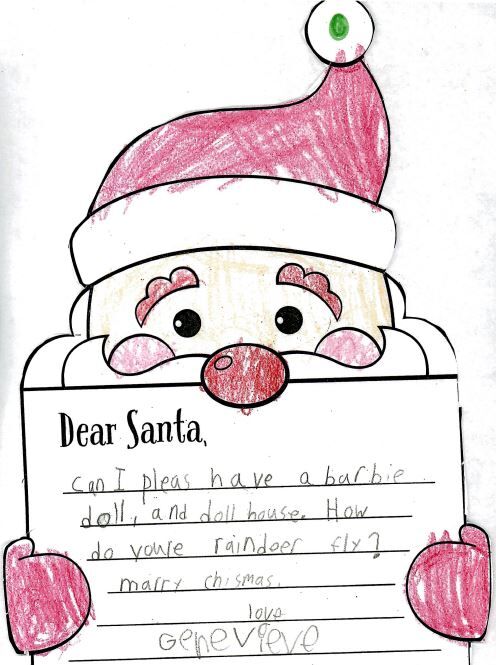 Dear Santa,
can I pleas have a barbie
doll, and doll house. How
do youre raindeer fly?
marry chismas.
love
Genevieve